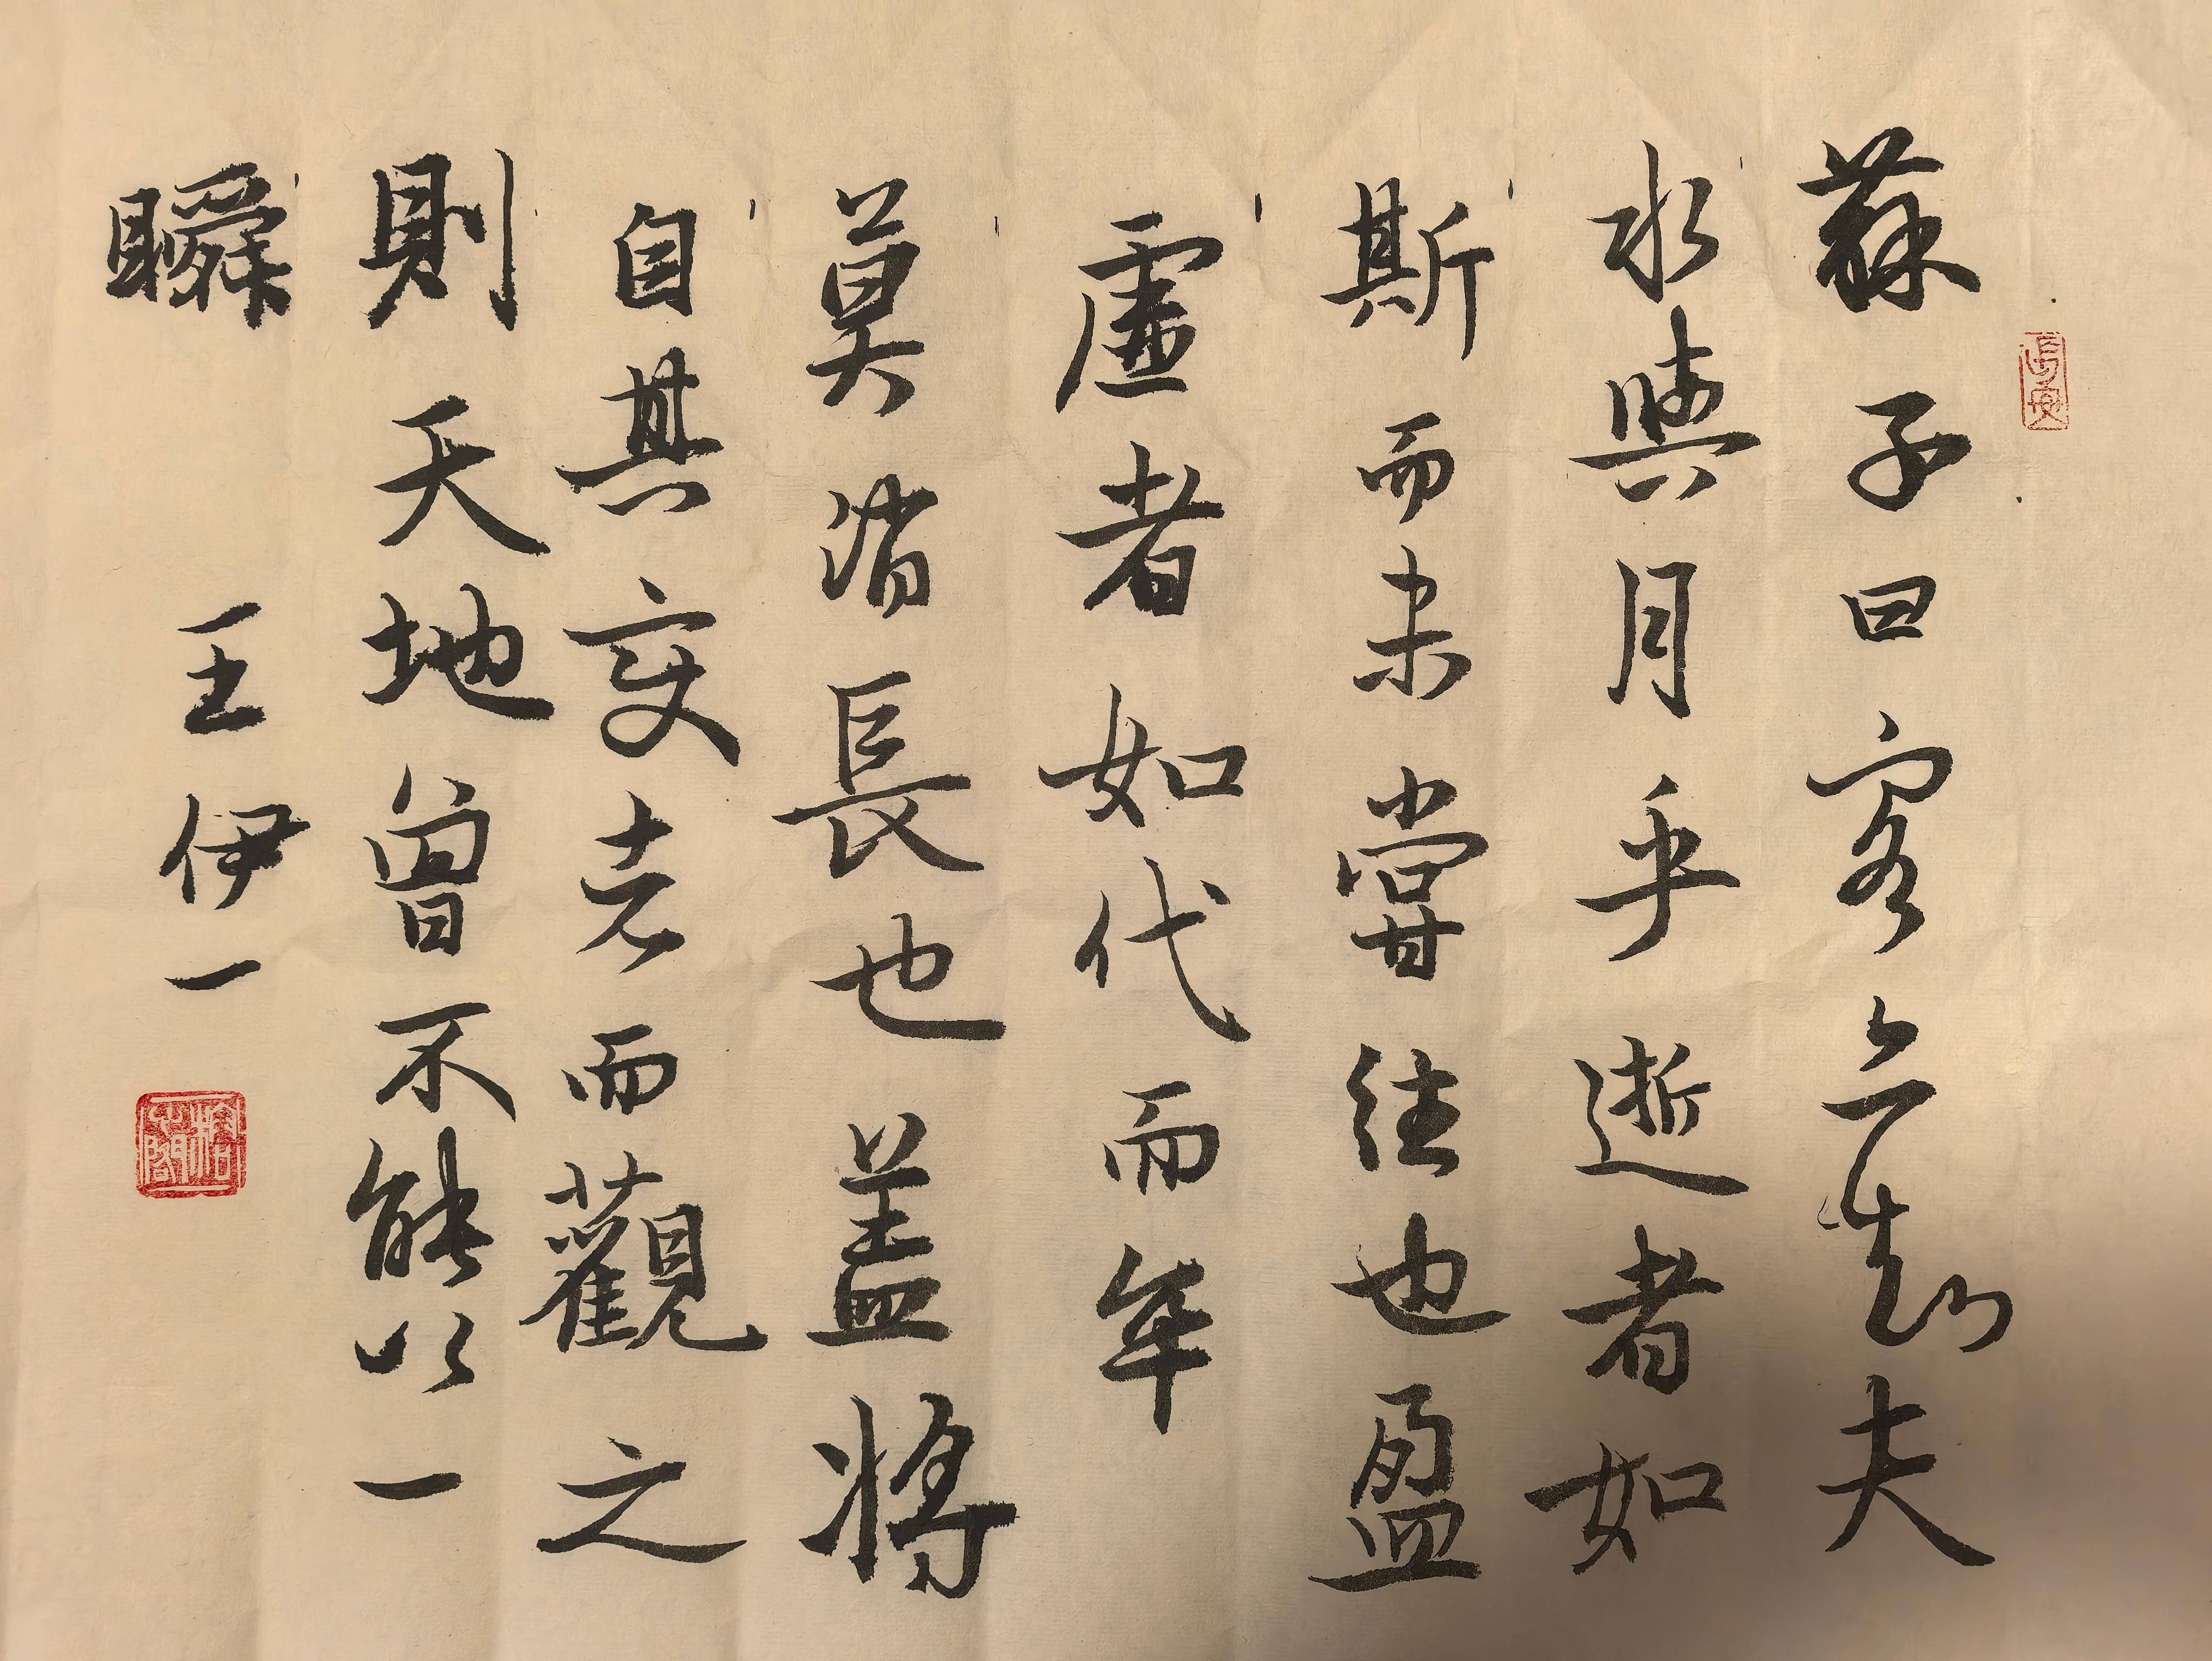 蘇子曰客亦知夫
水與月乎逝者如
斯而未嘗往也盈
虛者如代而卒
莫消長也盖將
自其變者而觀之
則天地曾不能以一
瞬
王伊一